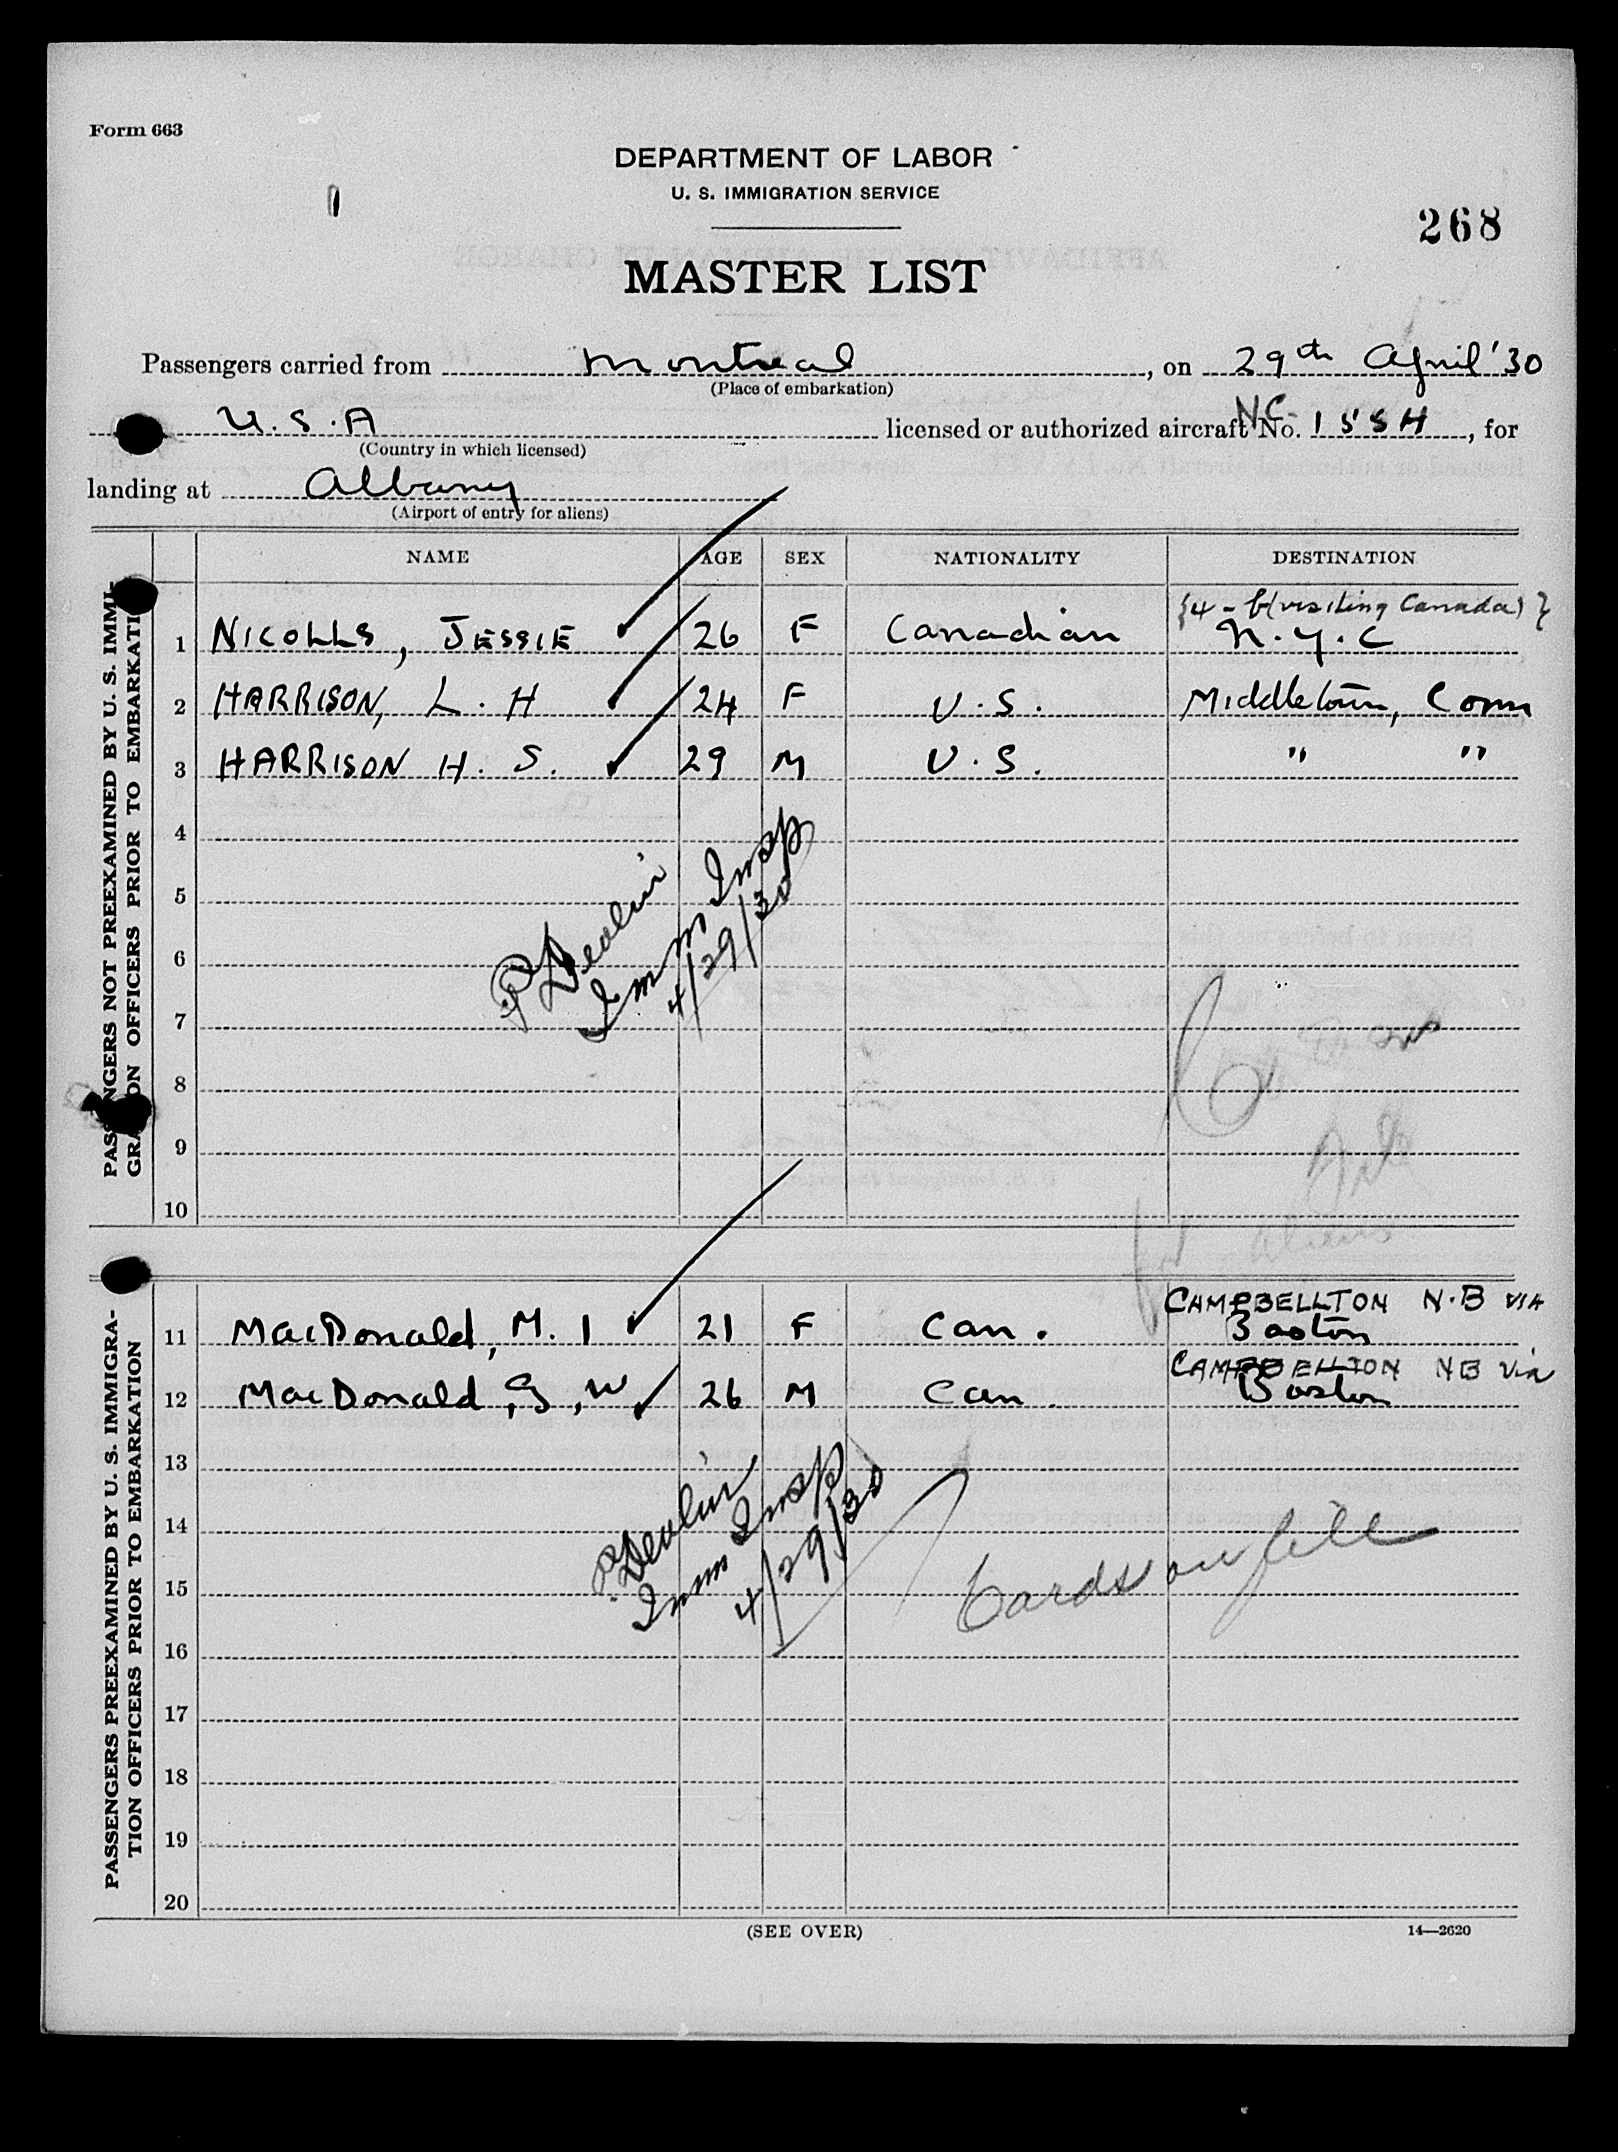 Form 663
DEPARTMENT OF LABOR
U. S. IMMIGRATION SERVICE
1
268
MASTER LIST
Passengers carried from Montreal, on 29th April '30
(Place of embarkation)
U.S.A licensed or authorized aircraft No. NC- 155H, for
(Country in which licensed)
landing at Albany
(Airport of entry for aliens)
NAME AGE SEX NATIONALITY DESTINATION
PASSENGERS NOT PREEXAMINED BY U. S. IMMI-
GRATION OFFICERS PRIOR TO EMBARKATION
{4-b(visiting Canada)}
1 NICOLLS, JESSIE 26 F Canadian N.Y.C
2 HARRISON, L. H 24 F U.S. Middletown, Conn
3 HARRISON H. S. 29 M U.S. " "
4
5
6
7
8
9
10
P Devlin
Imm Insp
4/29/30
for aliens
PASSENGERS PREEXAMINED BY U. S. IMMIGRA-
TION OFFICERS PRIOR TO EMBARKATION
CAMPBELLTON N.B VIA
11 MacDonald, M. I 21 F Can. Boston
CAMPBELLTON NB Via
12 MacDonald, G, W 26 M Can. Boston
13
14
15
16
17
18
19
20
P Devlin
Imm Insp
4/29/30
Cards on file
(SEE OVER)
14—2620